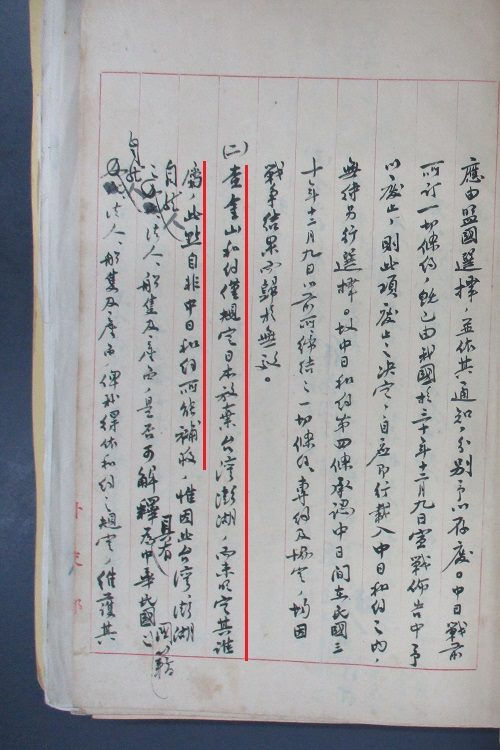 應由盟國選擇，並依其通知，分別予以存廢。中日戰前
所訂一切條約，既已由我國於三十年十二月九日宣戰佈告中予
以廢止，則此項廢止之決定，自應即行載入中日和約之內，
無待另行選擇。故中日和約第四條承認中日間在民國三
十年十二月九日以前所締結之一切條約、專約及協定，均因
戰爭結果而歸於無效。
(二)查金山和約僅規定日本放棄台灣澎湖，而未明定其誰
屬，此點自非中日和約所能補救，惟因此台灣澎湖
自然人法人、船隻及產品，是否可解釋為具有中華民國之國籍
自然人法人、船隻及產品，俾就得依和約之規定，維護其
外交部